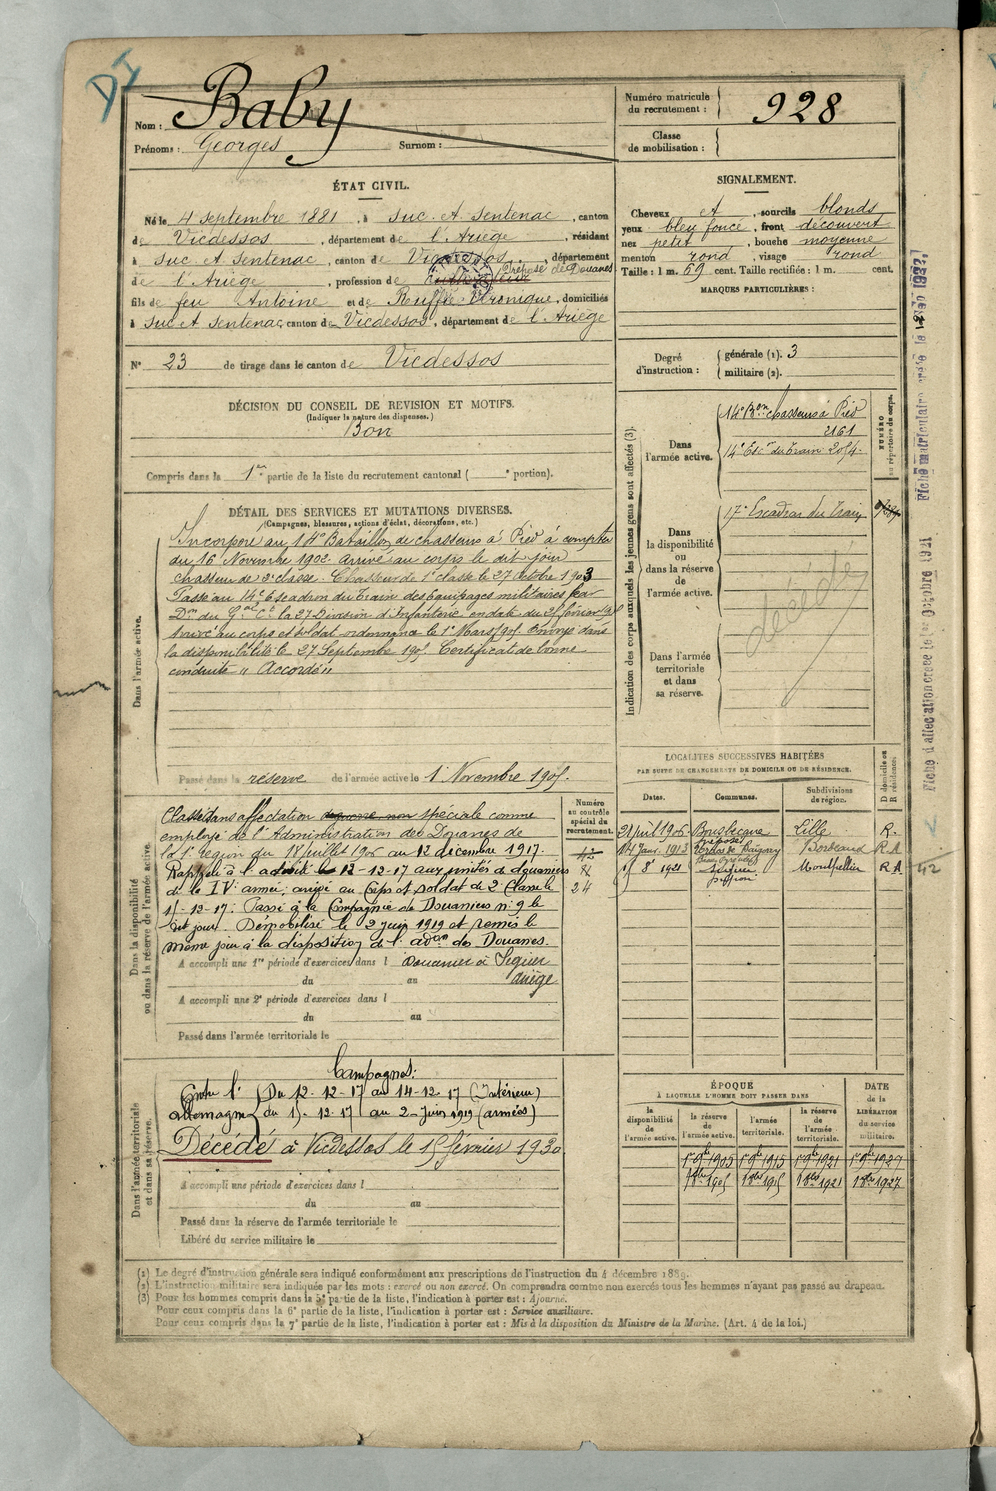 DI
Nom : Baby
Prénoms : Georges Surnom :
Numéro matricule du recrutement : 928
Classe de mobilisation :
ÉTAT CIVIL.
Né le 4 septembre 1881, à Suc-et-Sentenac, canton
de Vicdessos, département de l'Ariège, résidant
à Suc-et-Sentenac, canton de Vicdessos, département
de l'Ariège, profession de Préposé des Douanes
fils de feu Antoine et de Rouffié Véronique, domiciliés
à Suc et Sentenac, canton de Vicdessos, département de l'Ariège
N° 23 de tirage dans le canton de Vicdessos
SIGNALEMENT.
Cheveux et , sourcils blonds
yeux bleu foncé, front découvert
nez petit, bouche moyenne
menton rond, visage rond
Taille : 1 m. 69 cent. Taille rectifiée : 1 m. cent.
MARQUES PARTICULIÈRES :
Degré d'instruction : générale (1). 3
militaire (2).
DÉCISION DU CONSEIL DE REVISION ET MOTIFS.
(Indiquer la nature des dispenses.)
Bon
Compris dans la 1re partie de la liste du recrutement cantonal ( e portion).
DÉTAIL DES SERVICES ET MUTATIONS DIVERSES.
(Campagnes, blessures, actions d'éclat, décorations, etc.)
Dans l'armée active.
Incorporé au 14e Bataillon de chasseurs à Pied à compter
du 16 Novembre 1902. Arrivé au corps le dit jour
chasseur de 2e classe. Chasseur de 1e classe le 27 octobre 1903
Passé au 14e Escadron du Train des équipages militaires par
Don du Gal Ct la 27 Division d'Infanterie en date du
Arrivé au corps et soldat ordonnance le 1er Mars 1905. Envoyé dans
la disponibilité le 27 Septembre 1905. Certificat de bonne
conduite "Accordé"
Passé dans la réserve de l'armée active le 1 Novembre 1905.
Indication des corps auxquels les jeunes gens sont affectés (3).
NUMÉRO au répertoire du corps.
Dans l'armée active.
14e Bon chasseurs à Pied
2161
14e Esc. du Train 2054.
Dans la disponibilité ou dans la réserve de l'armée active.
17e Escadron du Train
décédé
Dans l'armée territoriale et dans sa réserve.
Fiche matriculaire créée le 1927
Fiche d'affectation créée le 1er Octobre 1921
Dans la disponibilité ou dans la réserve de l'armée active.
Numéro au contrôle spécial du recrutement.
Classé dans affectation spéciale comme
employé de l'Administration des Douanes de
la 1e région du 18 juillet 1906 au 12 décembre 1917.
Rappelé à l'activité le 12-12-17 aux unités de douaniers
de la IVe armée, arrivé au Corps et soldat de 2e Classe le
15-12-17. Passé à la Compagnie de Douaniers n° 9 le
dit jour. Démobilisé le 2 juin 1919 et remis le
même jour à la disposition de l'adon des Douanes.
A accompli une 1re période d'exercices dans l Douanier à Siguer
du au Ariège
A accompli une 2e période d'exercices dans l
du au
Passé dans l'armée territoriale le
24
LOCALITÉS SUCCESSIVES HABITÉES
PAR SUITE DE CHANGEMENTS DE DOMICILE OU DE RÉSIDENCE.
Dates. Communes. Subdivisions de région. D domicile ou R résidence.
2 Avril 1906 Bousbecque Lille R.
14 Janv. 1913 Bordeaux R A
8 1921 Siguer Montpellier R A
42
Dans l'armée territoriale et dans sa réserve.
Campagnes :
Contre l'Allemagne
Du 12-12-17 au 14-12-17 (Intérieur)
du 15-12-17 au 2-Juin 1919 (armées)
Décédé à Vicdessos le 15 février 1930
A accompli une période d'exercices dans l
du au
Passé dans la réserve de l'armée territoriale le
Libéré du service militaire le
ÉPOQUE
À LAQUELLE L'HOMME DOIT PASSER DANS
DATE de la LIBÉRATION du service militaire.
la disponibilité de l'armée active. la réserve de l'armée active. l'armée territoriale. la réserve de l'armée territoriale.
1er 9bre 1905 1er 9bre 1915 1er 9bre 1921 1er 9bre 1927
1 8bre 1905 1 8bre 1915 1 8bre 1921 1 8bre 1927
(1) Le degré d'instruction générale sera indiqué conformément aux prescriptions de l'instruction du 4 décembre 1889.
(2) L'instruction militaire sera indiquée par les mots : exercé ou non exercé. On comprendra comme non exercés tous les hommes n'ayant pas passé au drapeau.
(3) Pour les hommes compris dans la 5e partie de la liste, l'indication à porter est : Ajourné.
Pour ceux compris dans la 6e partie de la liste, l'indication à porter est : Service auxiliaire.
Pour ceux compris dans la 7e partie de la liste, l'indication à porter est : Mis à la disposition du Ministre de la Marine. (Art. 4 de la loi.)